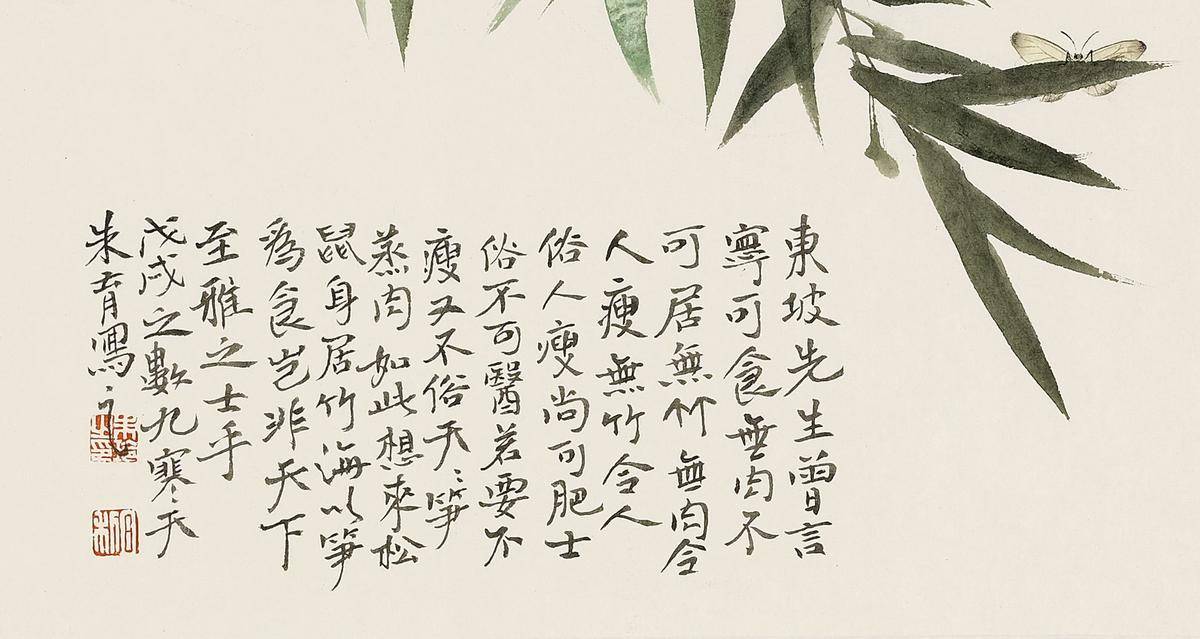 東坡先生曾言
寧可食無肉不
可居無竹無肉令
人瘦無竹令人
俗人瘦尚可肥士
俗不可醫若要不
瘦又不俗天〻筍
蒸肉如此想來松
鼠身居竹海以筍
為食豈非天下
至雅之士乎
戊戌之數九寒天
朱育寫